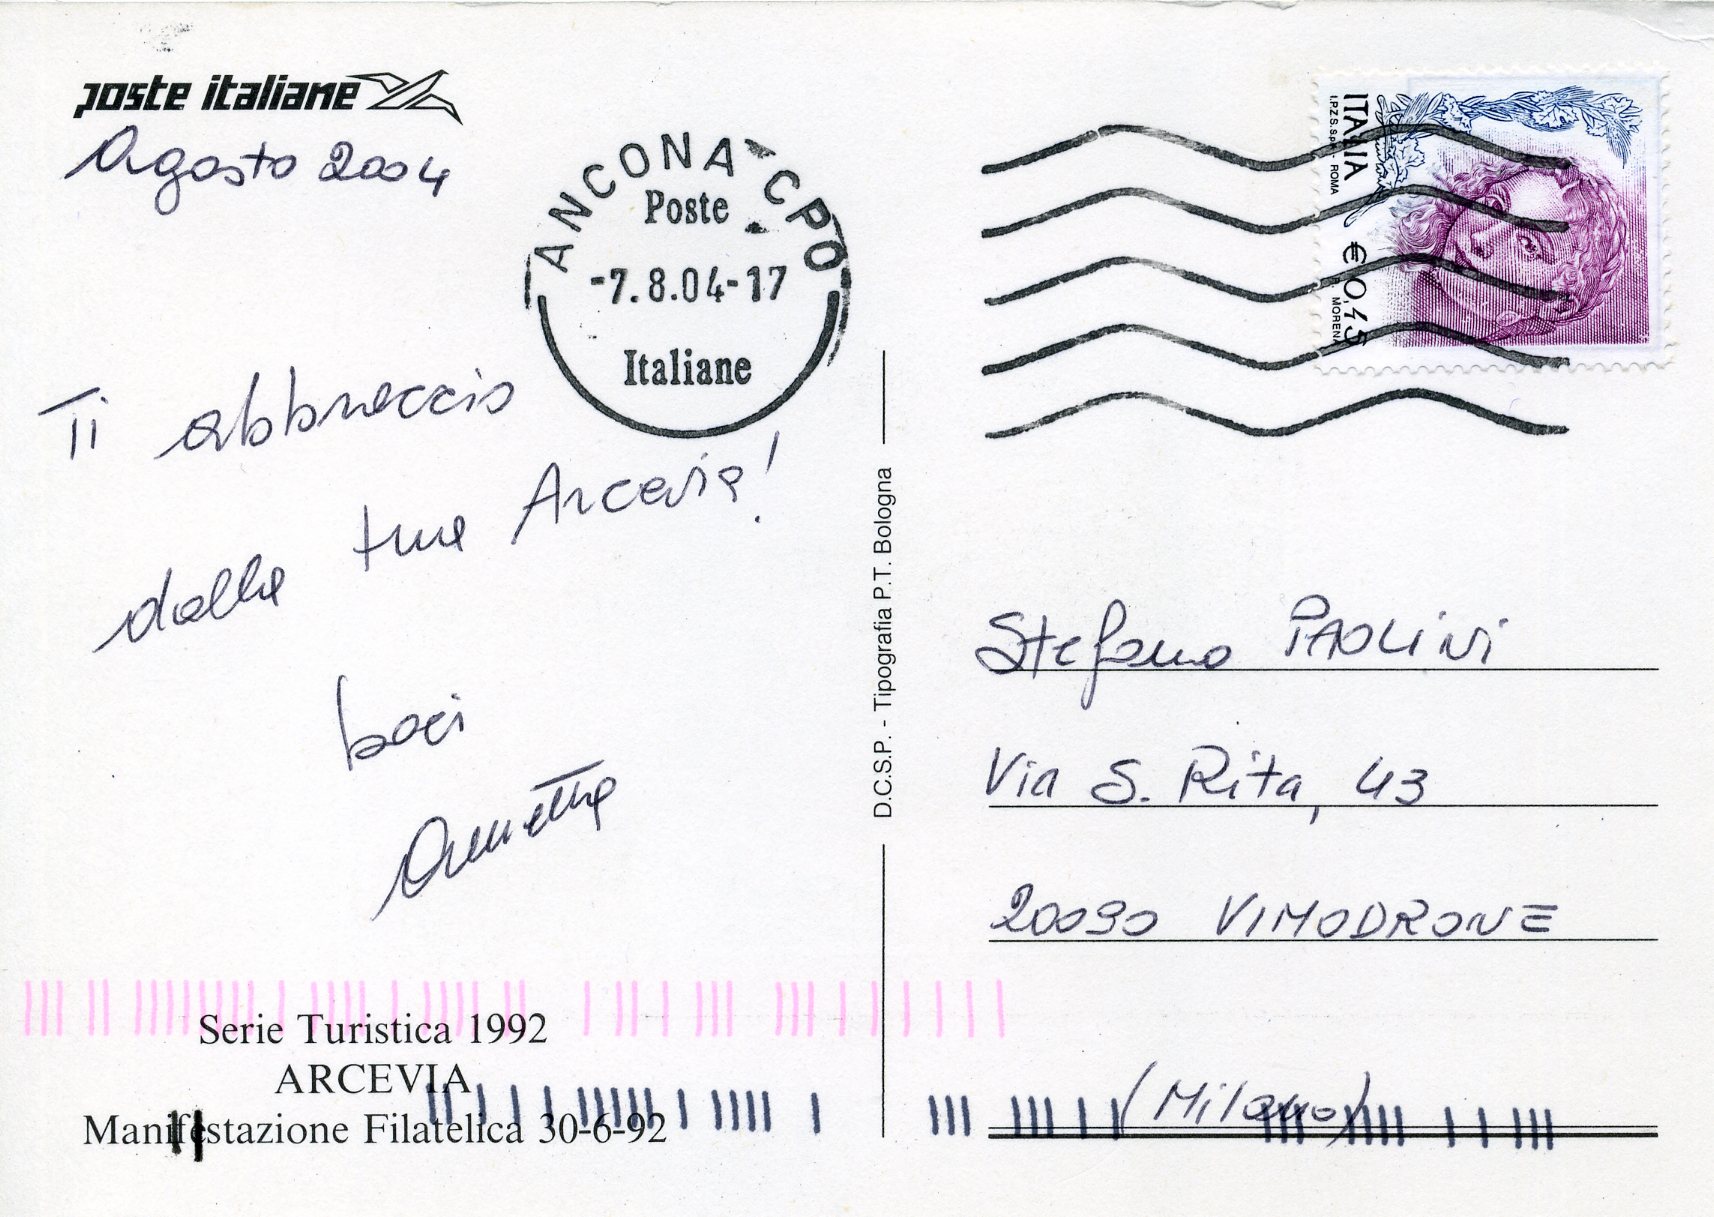 poste italiane
Agosto 2004
ANCONA CPO
Poste
-7.8.04-17
Italiane
Ti abbraccio
dalla tua Arcevia!
baci
Annetta
Serie Turistica 1992
ARCEVIA
Manifestazione Filatelica 30-6-92
D.C.S.P. - Tipografia P.T. Bologna
ITALIA
€ 0,45
I.P.Z.S. S.p.A. - ROMA
Stefano PAOLINI
Via S. Rita, 43
20090 VIMODRONE
(Milano)